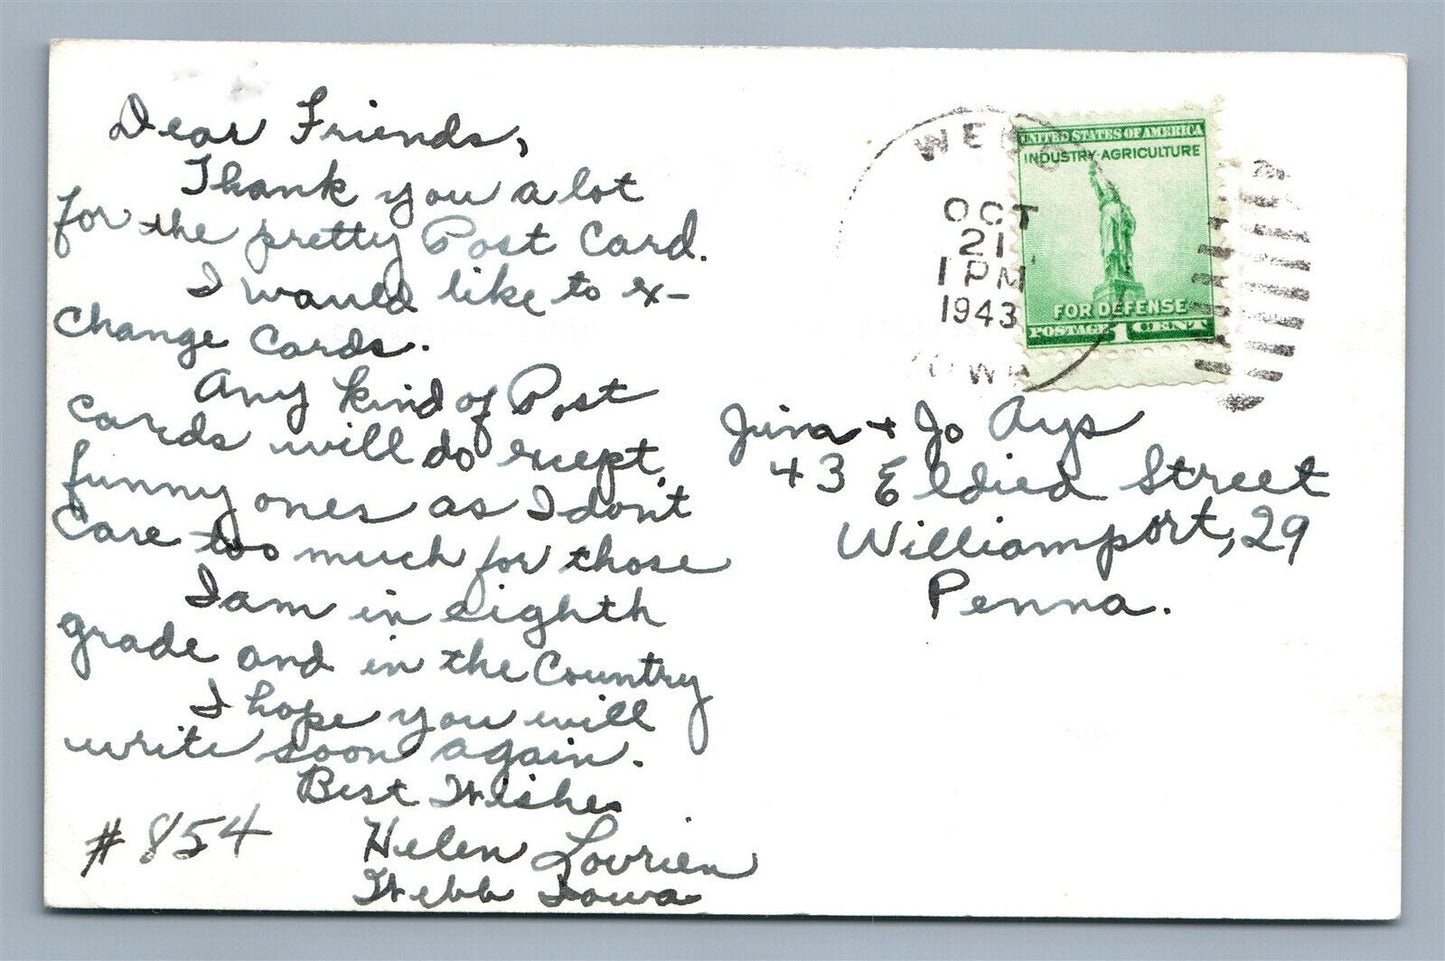 Dear Friends,
Thank you a lot
for the pretty Post Card.
I would like to ex-
change Cards.
Any kind of Post
cards will do except
funny ones as I don't
care too much for those
I am in eighth
grade and in the Country
I hope you will
write soon again.
Best Wishes
Helen Lovrien
Webb Iowa
#854
WEBB
OCT
21
1 PM
1943
IOWA
UNITED STATES OF AMERICA
INDUSTRY-AGRICULTURE
FOR DEFENSE
POSTAGE 1 CENT
+ Jo Ays
43 Eldred Street
Williamport, 29
Penna.